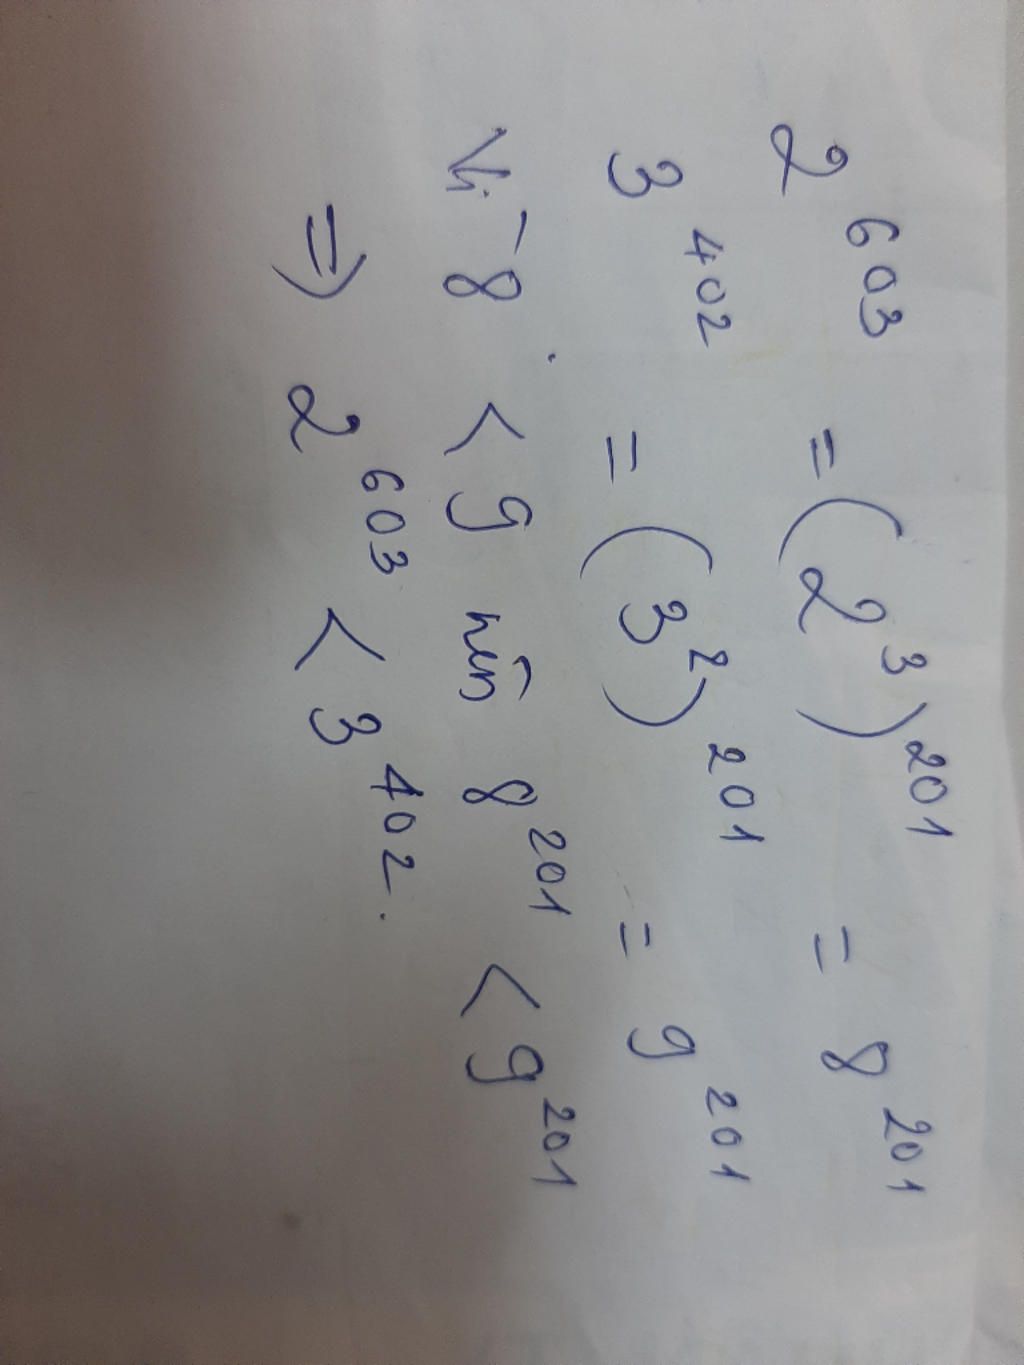 2^603 = (2^3)^201 = 8^201
3^402 = (3^2)^201 = 9^201
Vì 8 < 9 nên 8^201 < 9^201
=> 2^603 < 3^402.